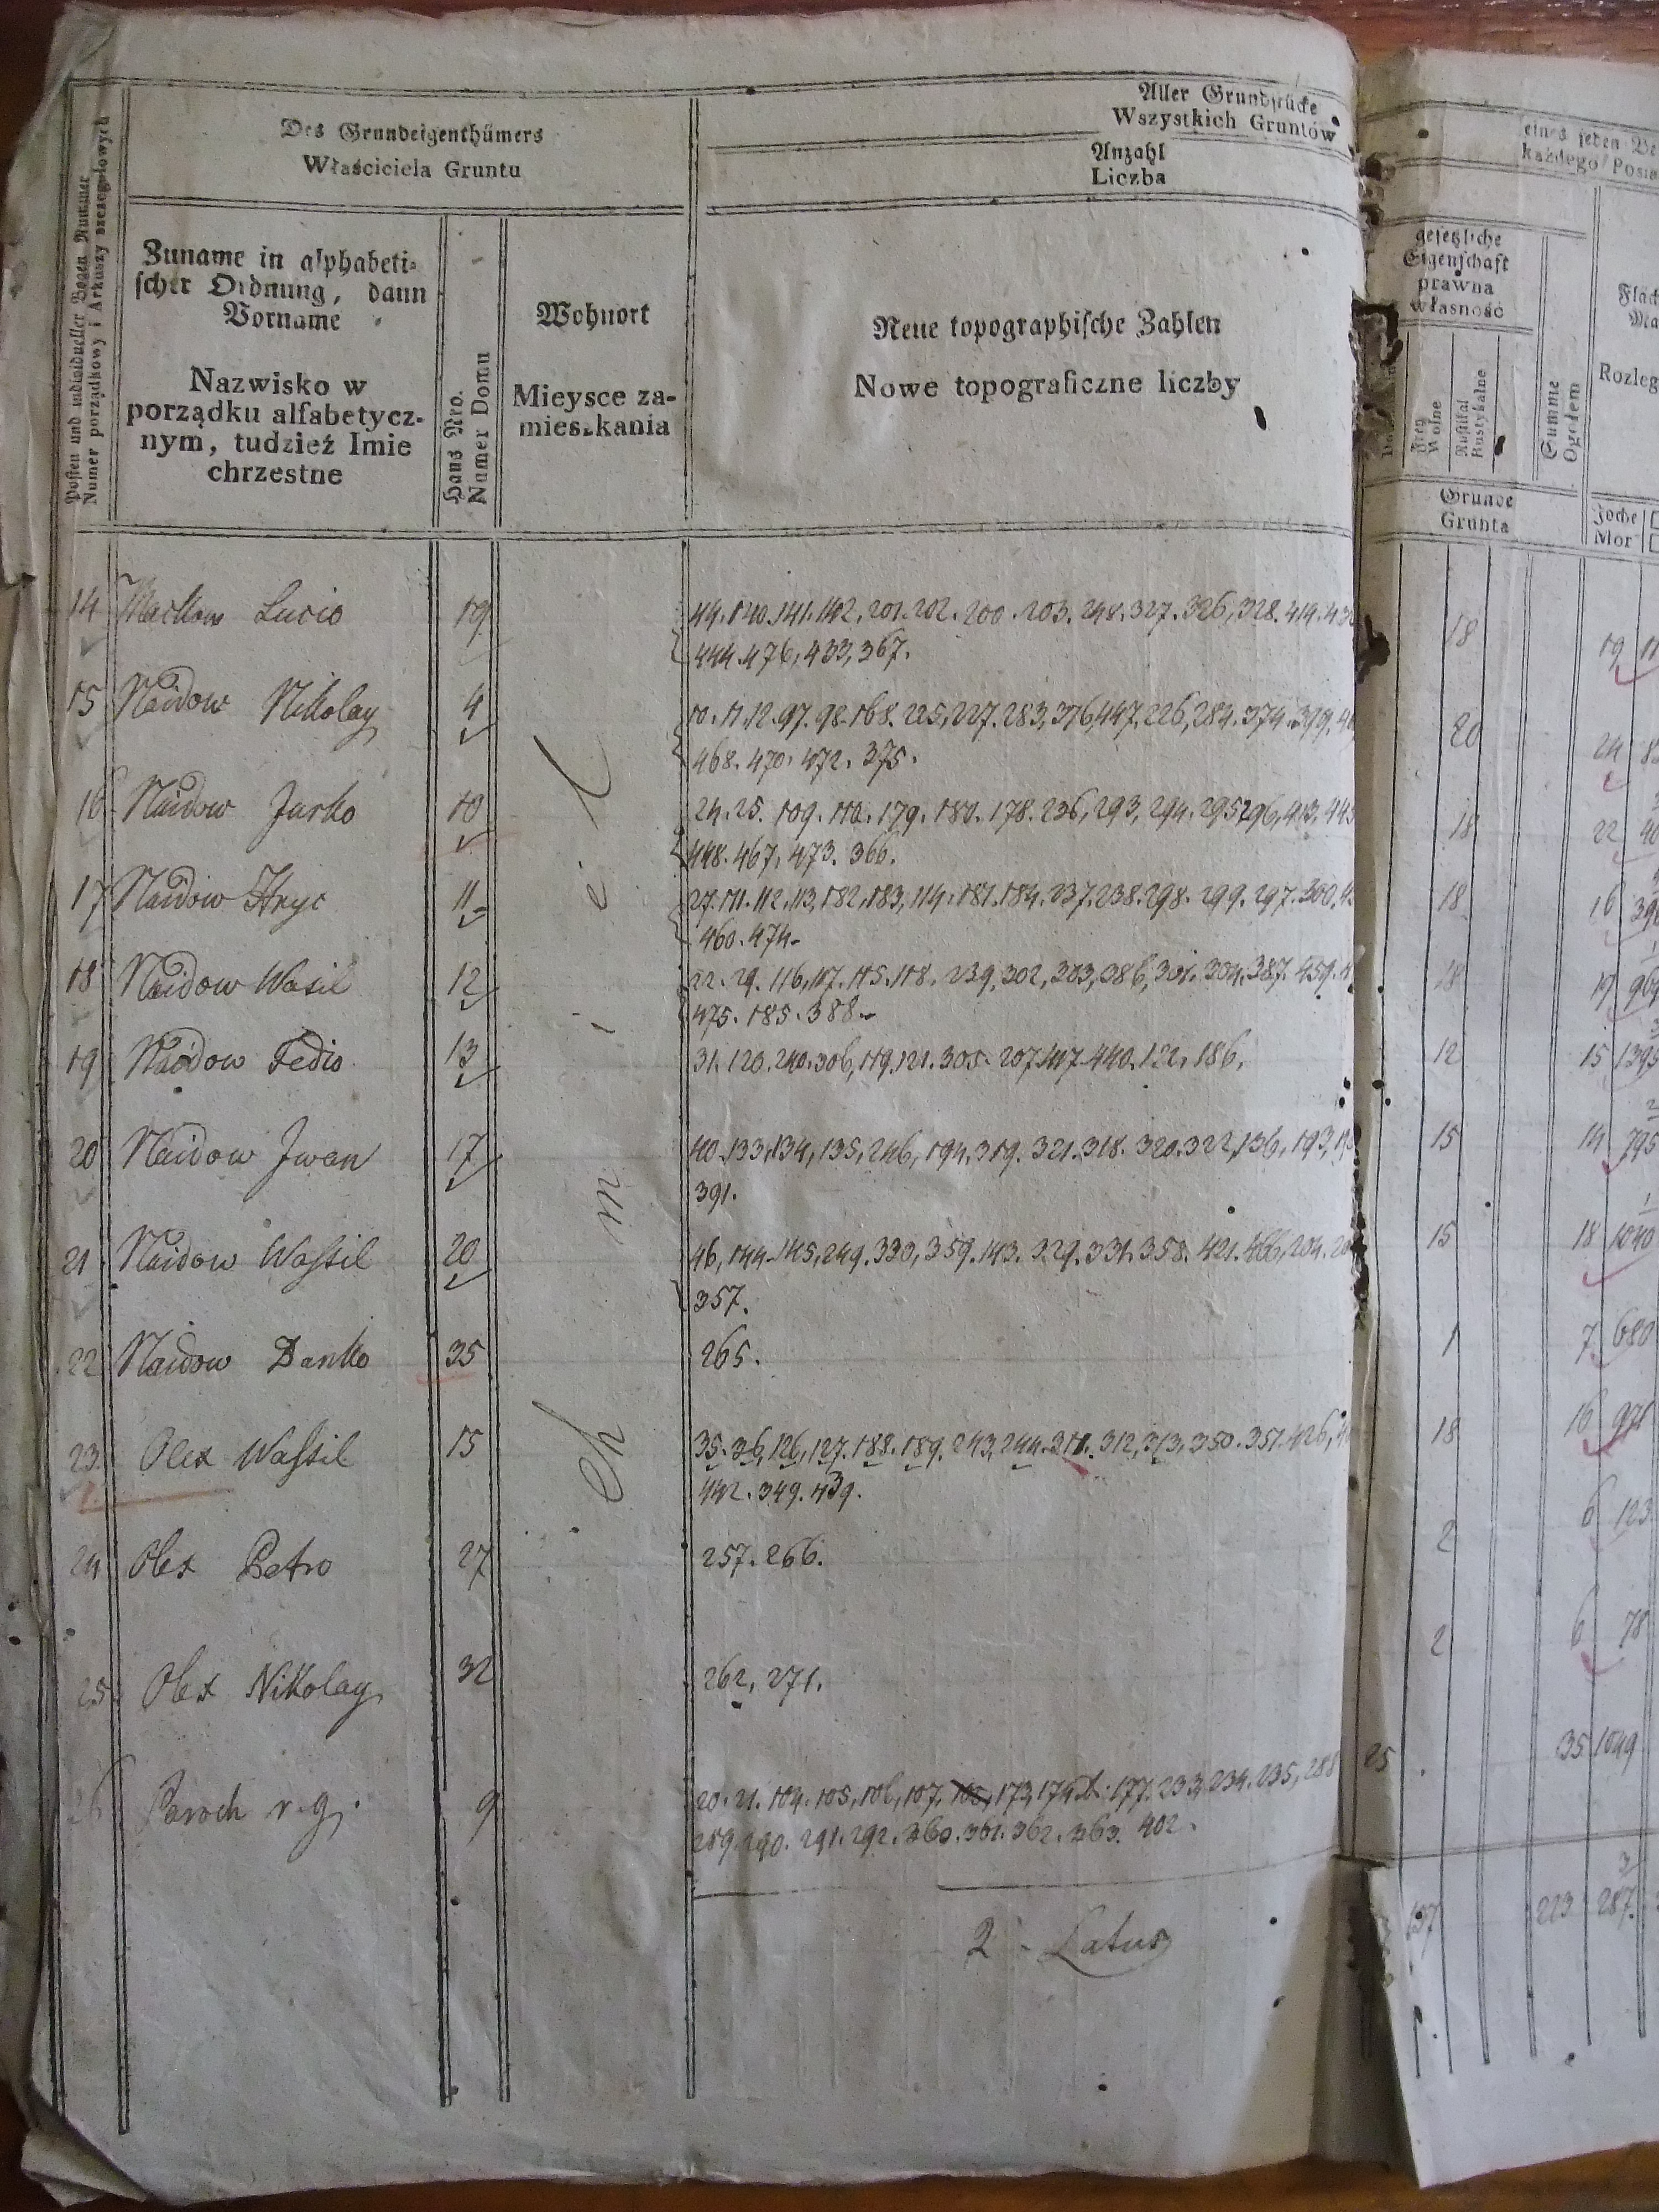 Posten und individueller Bogen Nummer
Numer porządkowy i Arkuszy szczegułowych
Des Grundeigenthümers
Właściciela Gruntu
Zuname in alphabeti-
scher Ordnung, dann
Vorname
Nazwisko w
porządku alfabetycz-
nym, tudzież Imie
chrzestne
Haus Nro.
Numer Domu
Wohnort
Mieysce za-
mieszkania
Aller Grundstücke
Wszystkich Gruntów
Anzahl
Liczba
Neue topographische Zahlen
Nowe topograficzne liczby
eines jeden
każdego
gesetzliche
Eigenschaft
prawna
własność
Frey
Wolne
Rustikal
Rustykalne
Summe
Ogołem
Grunde
Grunta
Joche
Mor
14 Lucio 19 44. 140. 141. 142, 201. 202. 200. 203. 248. 327. 326, 328. 414. 18 19
444. 476, 433, 367.
15 Naidow Nikolay 4 10. 11. 12. 97. 98. 168. 225, 227. 283, 376, 447. 226, 284. 374. 399. 20 24
468. 470. 472. 375.
16 Naidow Jurko 10 24. 25. 109. 110. 179. 180. 178. 236, 293, 294. 295, 296, 413. 18 22
448. 467, 473. 366.
17 Naidow Hryc 11 27. 111. 112. 113, 182, 183, 114. 181. 184. 237. 238. 298. 299. 297. 300. 18 16
460. 474.
18 Naidow Wasil 12 22. 29. 116, 117. 115. 118. 239, 302, 303, 386, 301. 304. 387. 459. 18 19
475. 185. 388.
19 Naidow Fedio 13 31. 120. 240. 306, 119, 121. 305. 207. 417. 440. 122. 186. 12 15 1395
20 Naidow Jwan 17 40. 133, 134, 135, 246, 194, 319. 321. 318. 320. 322, 136, 193, 15 14 795
391.
21 Naidow Wassil 20 46, 144. 145, 249. 330, 359. 143. 329. 331. 358. 421. 466, 204. 15 18 1040
357.
22 Naidow Danko 35 265. 1 7 680
23 Olex Wassil 15 35. 36, 126, 127. 188. 189. 243, 244. 311. 312, 313, 350. 351. 426, 18 16
442. 349. 439.
24 Olex Petro 27 257. 266. 2 6
25 Olex Nikolay 32 262, 271. 2 6 78
26 Paroch r. g. 9 20. 21. 104. 105, 106, 107, 173, 174. 177. 233, 234. 235, 288 25 35 1049
289. 290. 291. 292. 360. 361. 362. 363. 402.
2 Latus 137 223 287